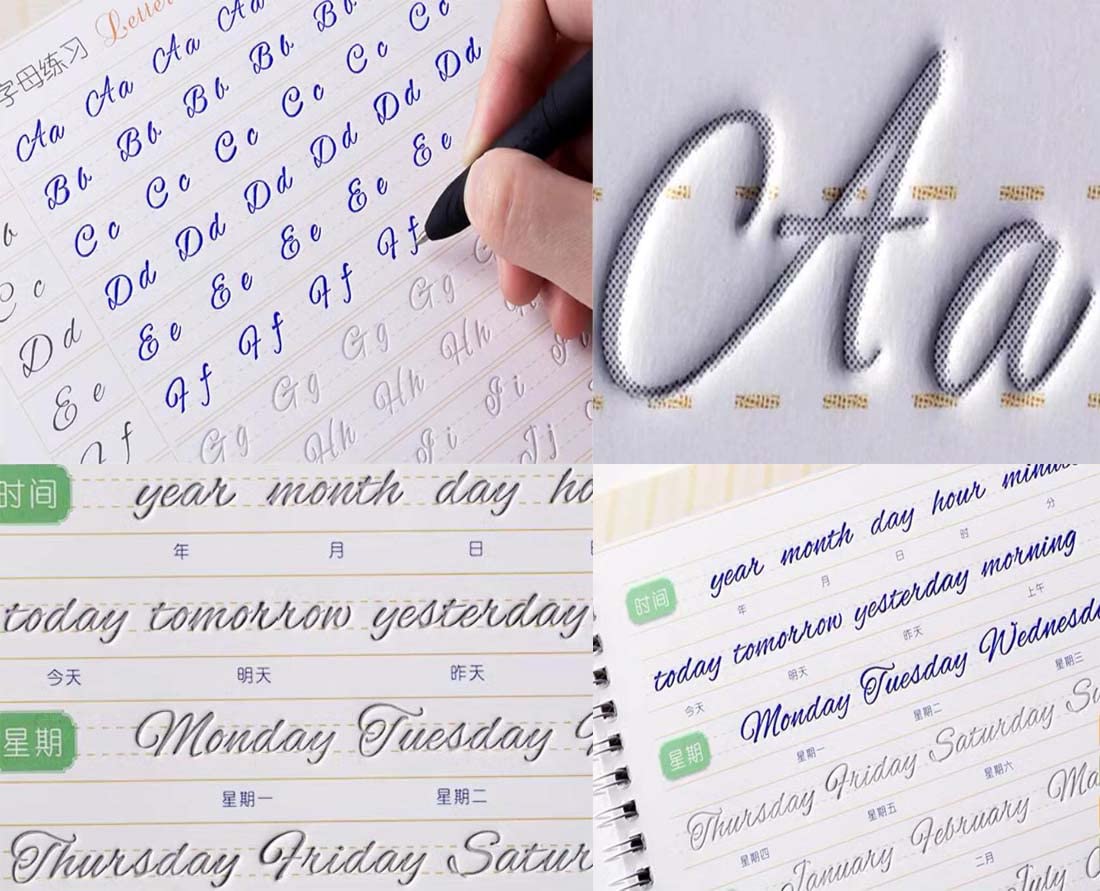 字母练习 Letter
Aa Aa Aa Aa
Bb Bb Bb Bb Bb
b Cc Cc Cc Cc Cc
Cc Dd Dd Dd Dd Dd
Dd Ee Ee Ee Ee Ee
Ee Ff Ff Ff Ff
f Gg Gg Gg Gg
Hh Hh Hh
Ii Ii Ii
Jj
Aa
时间 year month day
年 月 日
today tomorrow yesterday
今天 明天 昨天
星期 Monday Tuesday
星期一 星期二
Thursday Friday
时间 year month day hour
年 月 日 时 分
today tomorrow yesterday morning
今天 明天 昨天 上午
星期 Monday Tuesday
星期一 星期二 星期三
Thursday Friday Saturday
星期四 星期五 星期六
January February
二月
July